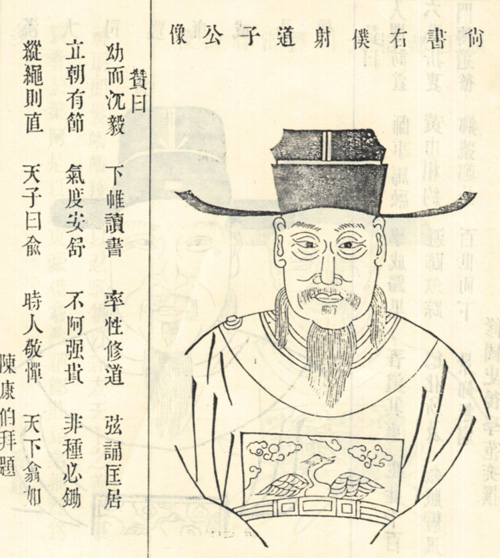 尙書右僕射道子公像
贊曰
幼而沈毅 下帷讀書 率性修道 弦誦匡居
立朝有節 氣度安舒 不阿强貴 非種必鋤
縱繩則直 天子曰兪 時人敬憚 天下翕如
陳康伯拜題